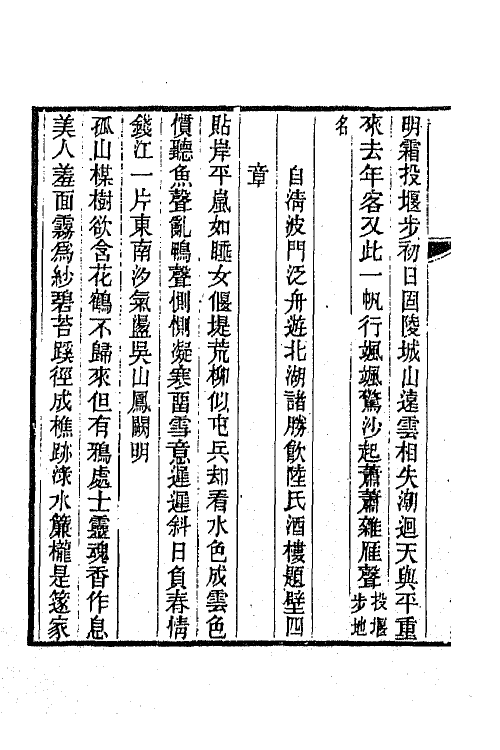 明霜投堰步初日固陵城山遠雲相失潮迴天與平重
來去年客又此一帆行颯颯驚沙起蕭蕭雜雁聲投堰步地
名
自清波門泛舟遊北湖諸勝飲陸氏酒樓題壁四
章
貼岸平嵐如睡女偃堤荒柳似屯兵却看水色成雲色
慣聽魚聲亂鴨聲惻惻凝寒畱雪意遲遲斜日負春情
錢江一片東南汐氣盪吳山鳳闕明
孤山楳樹欲含花鶴不歸來但有鴉處士靈魂香作息
美人羞面霧爲紗碧苔蹊徑成樵跡渌水簾櫳是篴家